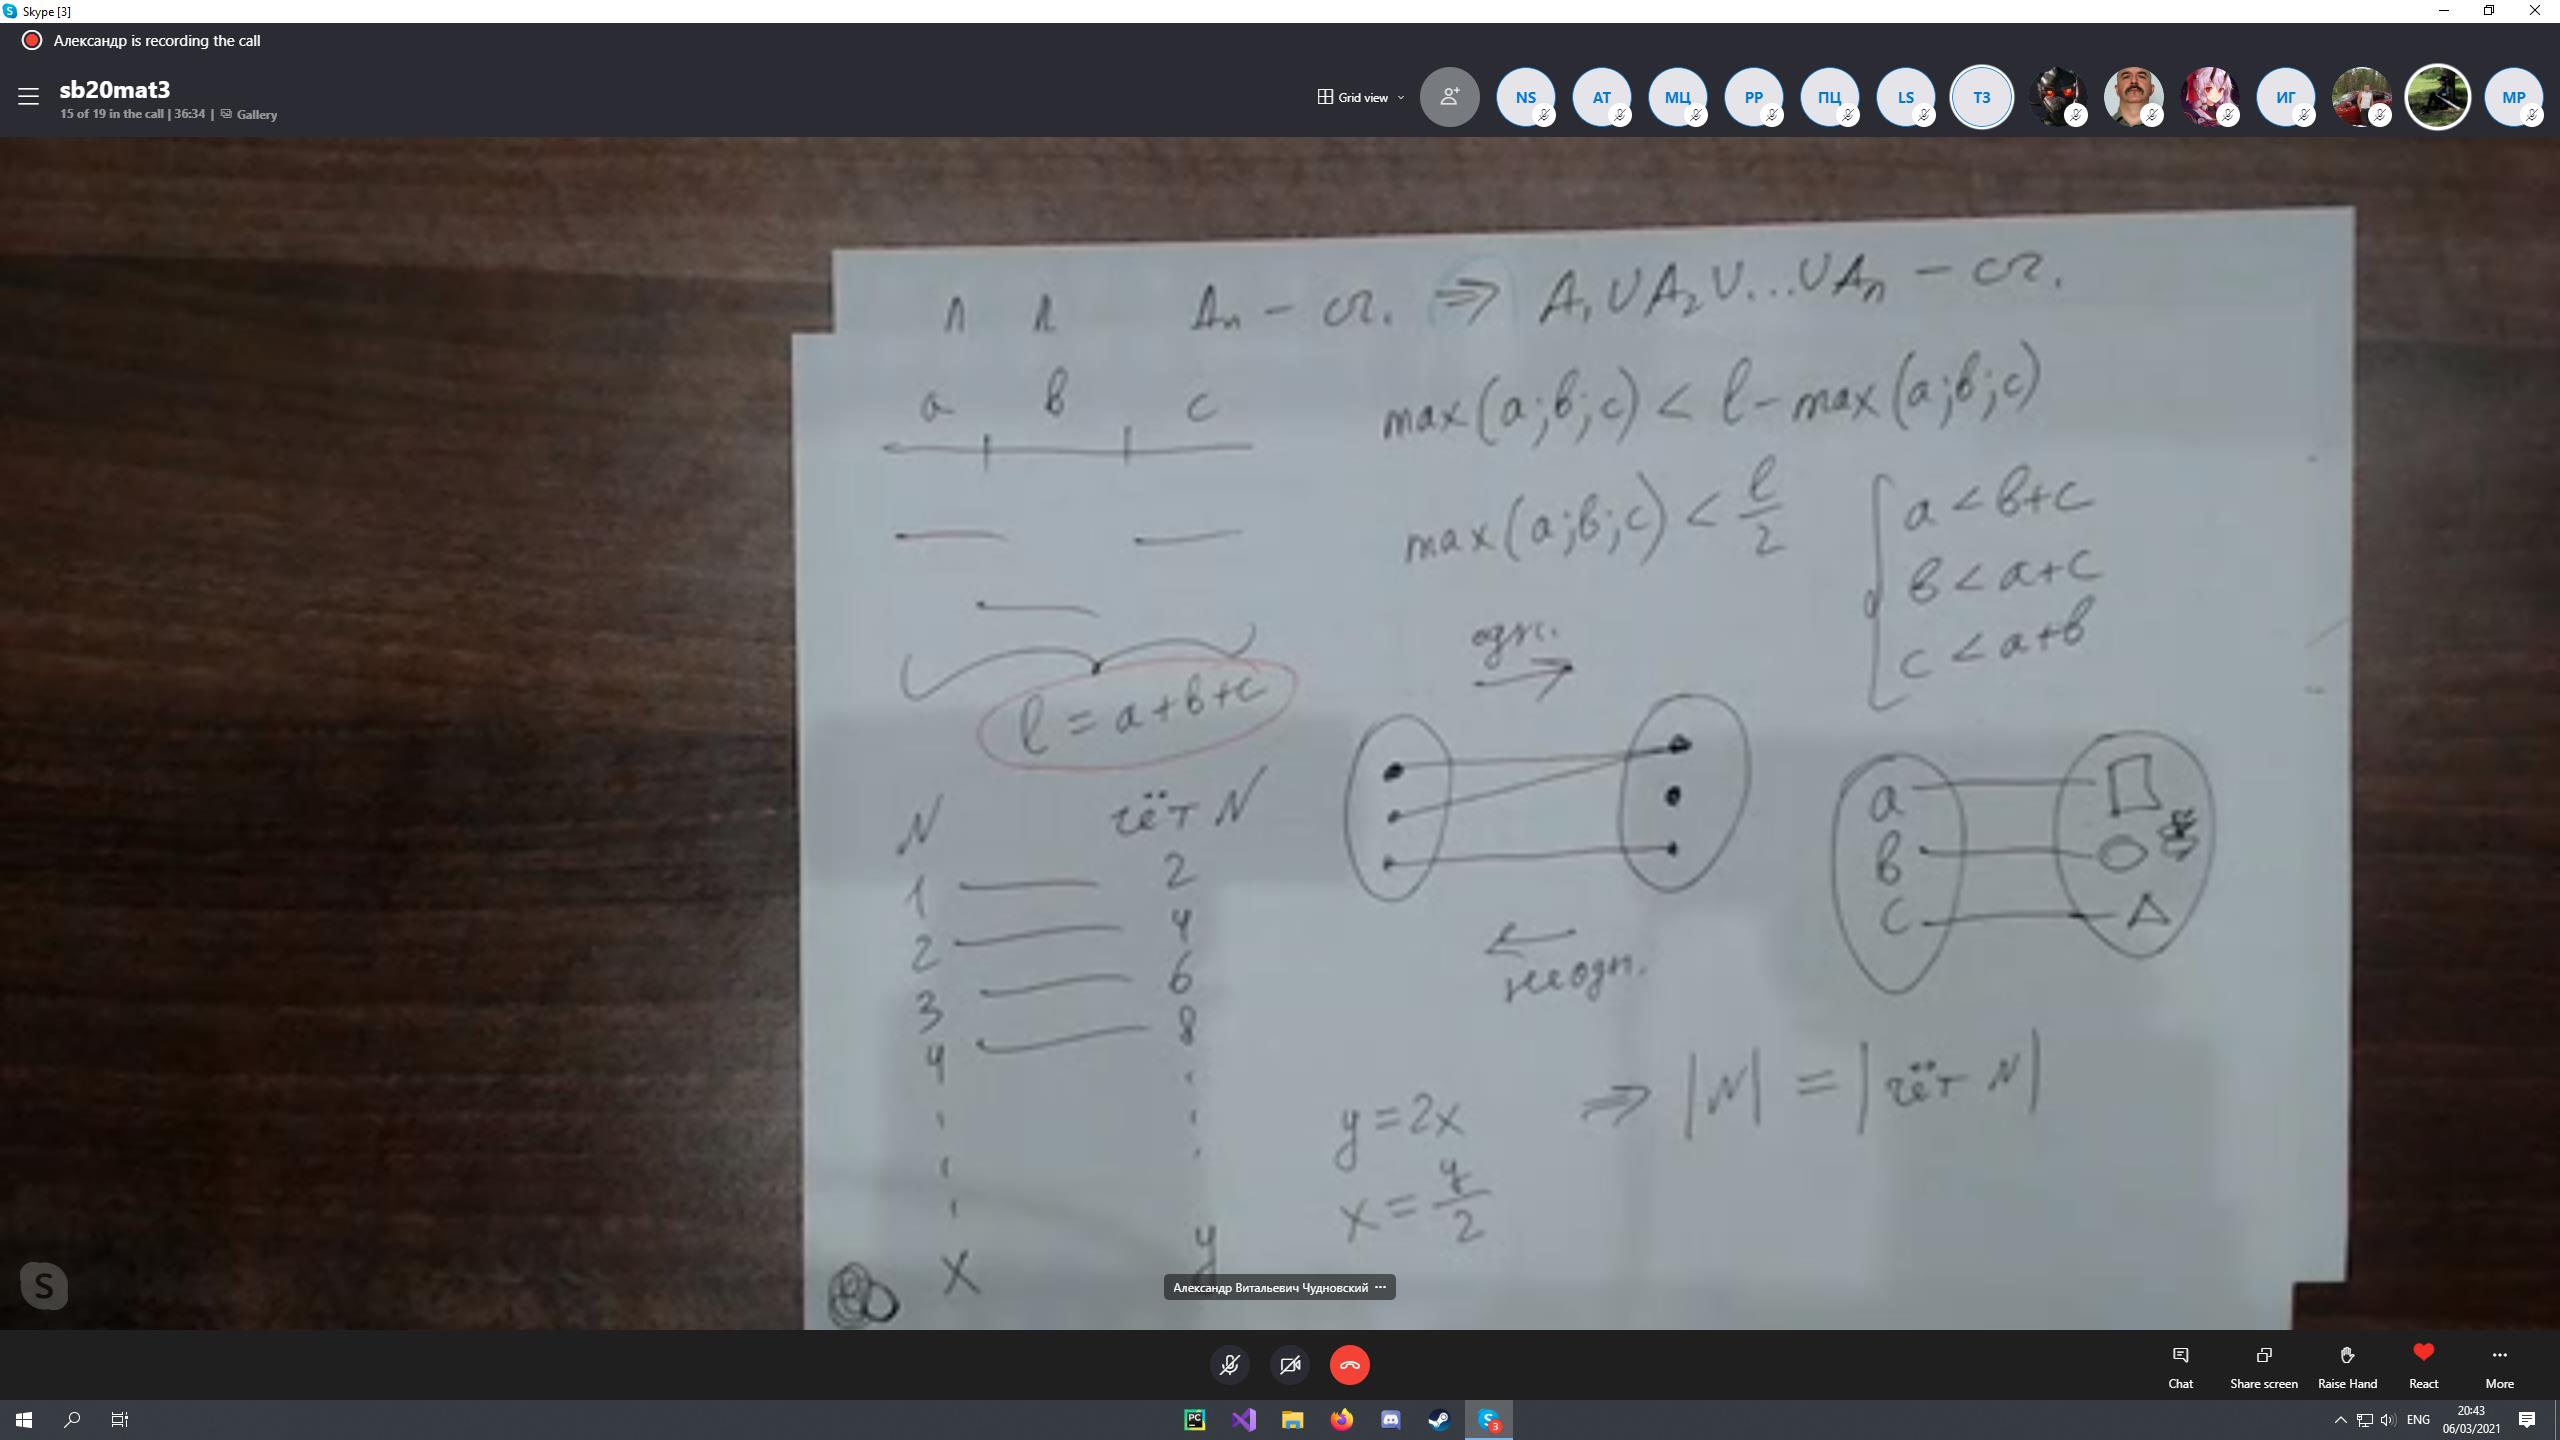 Skype [3]
Александр is recording the call
sb20mat3
15 of 19 in the call | 36:34 | Gallery
Grid view
NS AT МЦ PP ПЦ LS ТЗ ИГ MP
Aₙ — сч. ⇒ A₁ ∪ A₂ ∪ ... ∪ Aₙ — сч.
a b c
max(a;b;c) < l - max(a;b;c)
max(a;b;c) < l/2
a < b+c
b < a+c
c < a+b
l = a+b+c
одн.
неодн.
a
b
c
N чёт N
1 2
2 4
3 6
4 8
x y
y = 2x
x = y/2
⇒ |N| = |чёт N|
Александр Витальевич Чудновский
S
Chat
Share screen
Raise Hand
React
More
PC
S 3
ENG
20:43
06/03/2021